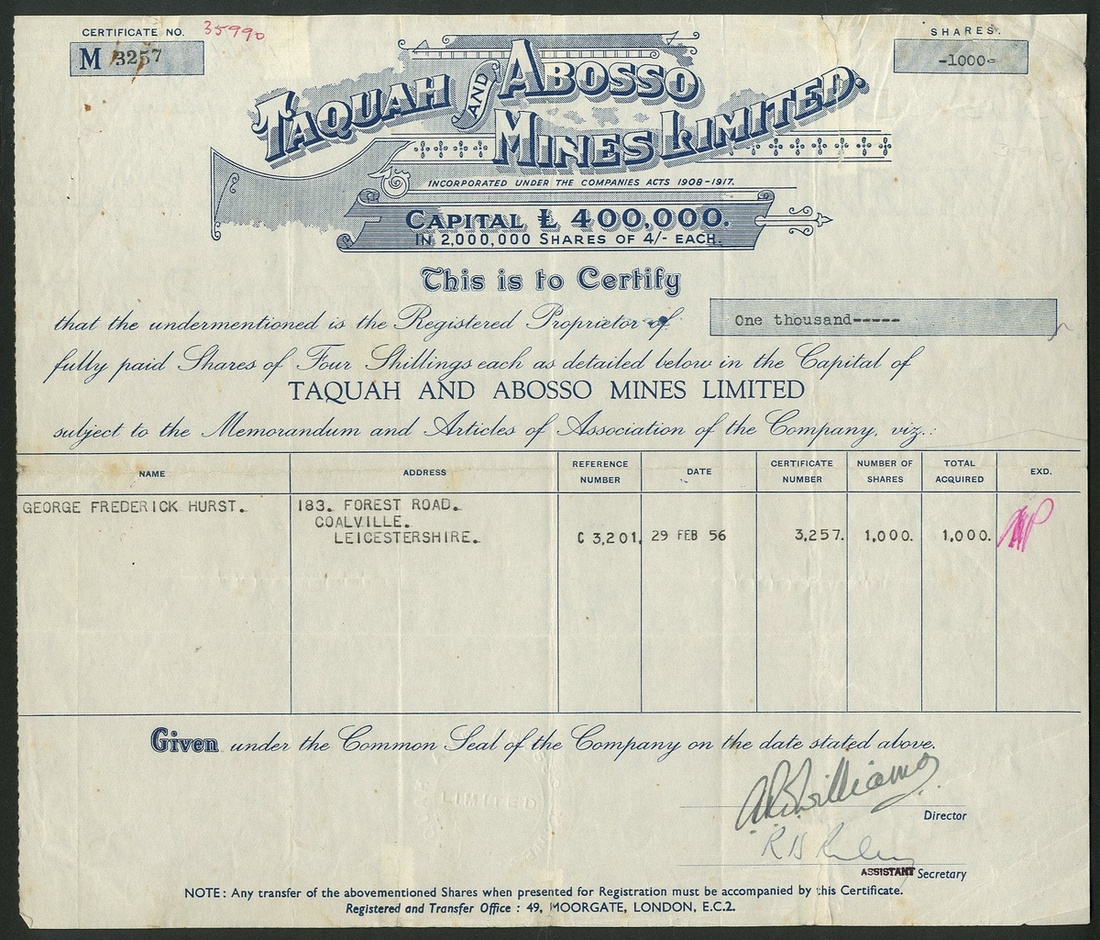 CERTIFICATE NO. 35990
M 3257
SHARES.
-1000-
TAQUAH AND ABOSSO
MINES LIMITED.
INCORPORATED UNDER THE COMPANIES ACTS 1908-1917.
CAPITAL £ 400,000.
IN 2,000,000 SHARES OF 4/- EACH.
This is to Certify
that the undermentioned is the Registered Proprietor of One thousand-----
fully paid Shares of Four Shillings each as detailed below in the Capital of
TAQUAH AND ABOSSO MINES LIMITED
subject to the Memorandum and Articles of Association of the Company, viz.:
NAME ADDRESS REFERENCE NUMBER DATE CERTIFICATE NUMBER NUMBER OF SHARES TOTAL ACQUIRED EXD.
GEORGE FREDERICK HURST. 183. FOREST ROAD.
COALVILLE.
LEICESTERSHIRE. C 3,201. 29 FEB 56 3,257. 1,000. 1,000.
Given under the Common Seal of the Company on the date stated above.
LIMITED
Director
ASSISTANT Secretary
NOTE: Any transfer of the abovementioned Shares when presented for Registration must be accompanied by this Certificate.
Registered and Transfer Office : 49, MOORGATE, LONDON, E.C.2.